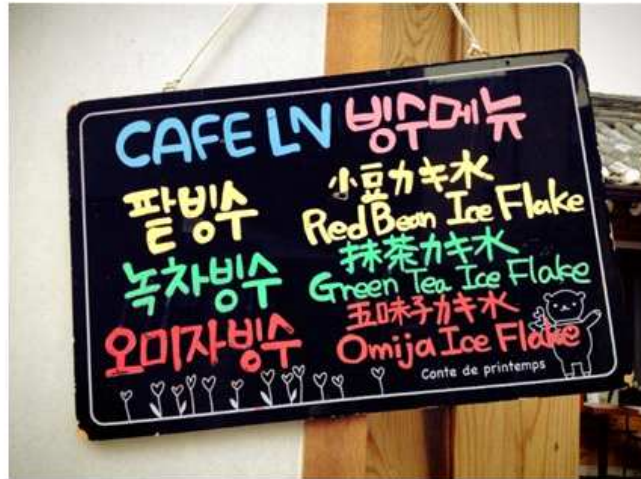 CAFE LN 빙수메뉴
팥빙수
小豆カキ氷
Red Bean Ice Flake
녹차빙수
抹茶カキ氷
Green Tea Ice Flake
오미자빙수
五味子カキ氷
Omija Ice Flake
Conte de printemps